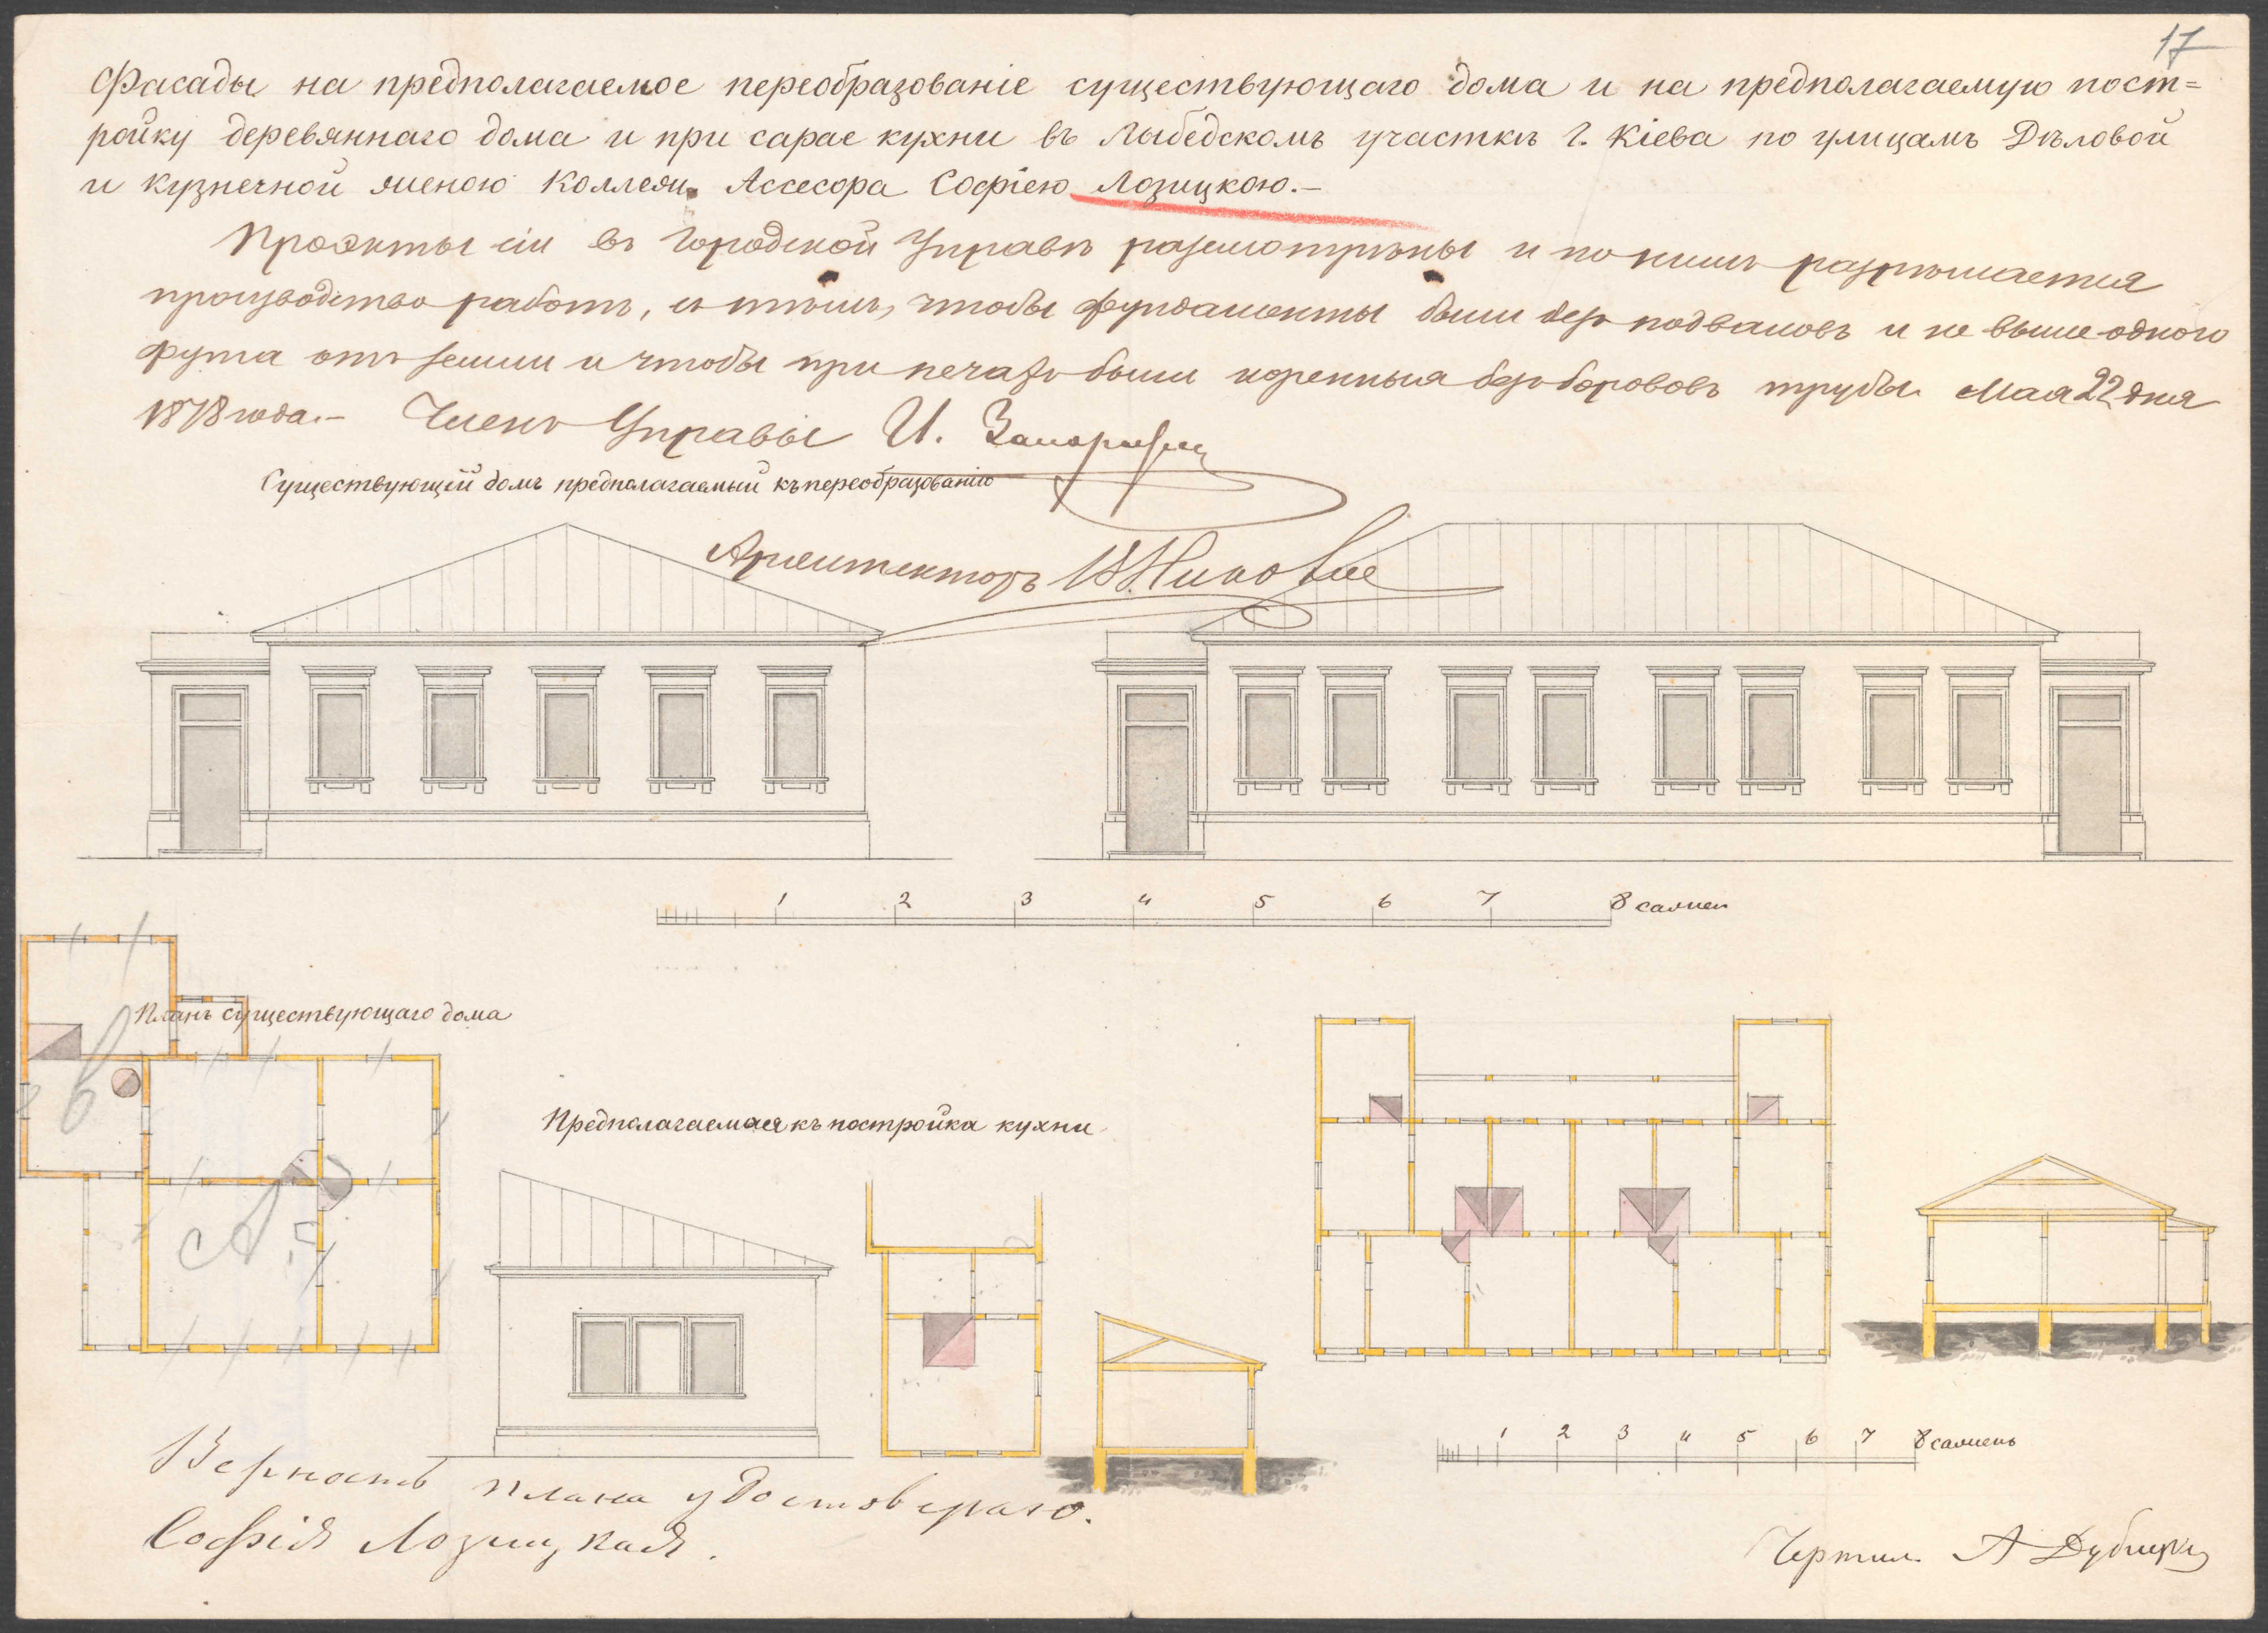 17
Фасады на предполагаемое переобразованіе существующаго дома и на предполагаемую пост=
ройку деревяннаго дома и при сарае кухни въ Лыбедскомъ участкѣ г. Кіева по улицамъ Дѣловой
и Кузнечной женою Коллежс. Ассесора Софіею Лозицкою.–
Проэкты сіи въ Городской Управѣ разсмотрѣны и по нимъ разрѣшается
производство работъ, съ тѣмъ, чтобы фундаменты были безъ подваловъ и не выше одного
фута отъ земли и чтобы при печахъ были коренныя безъ борововъ трубы. Мая 22 дня
1878 года.– Членъ Управы И.
Существующій домъ предполагаемый къ переобразованію
Архитекторъ В. Николаев
1 2 3 4 5 6 7 8 сажен
Планъ существующаго дома
В
Предполагаемая къ постройка кухни
А
1 2 3 4 5 6 7 8 сажень
Верность плана удостоверяю.
Софія Лозицкая.
Чертил. А Дубицкій